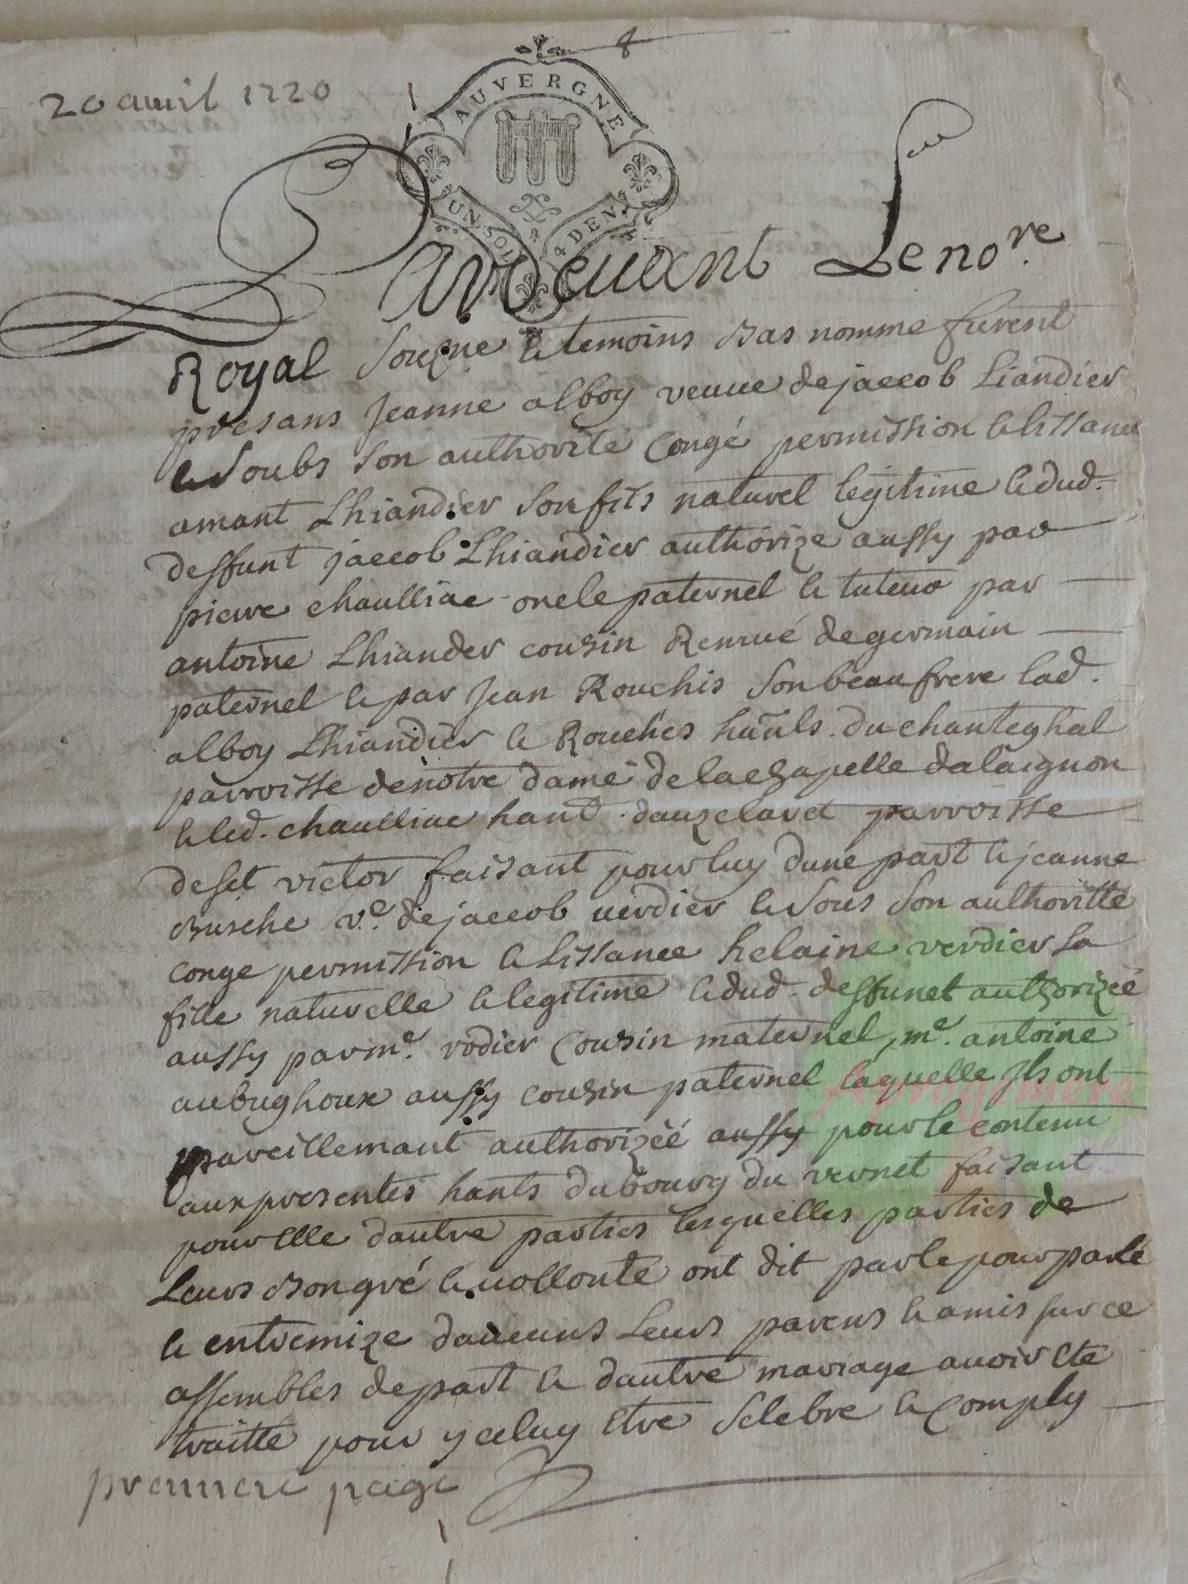 8
20 avril 1720
AUVERGNE
UN SOL 4 DEN.
Pardevant Le no.re
Royal Sousne le temoins bas nomme furent
presans Jeanne alboy veuve de jaccob Liandier
le soubs son authorité congé permission le lissance
amant Lhiandier son fils naturel legitime le dud.
deffunt jaccob Lhiandier authorize aussy par
pierre chaulliac oncle paternel le tuteur par
antoine Lhiander cousin Remué de germain
paternel le par Jean Rouchis son beau frere lad.
alboy Lhiandier le Rouches hants. du chanteghal
parroisse de notre dame de la chapelle dalaignon
le led. chaulliac hant. dauzelaret parroisse
de sct victor faisant pour luy dune part le jeanne
busche ve. de jaccob verdier le sous son authoritté
conge permission le lissance helaine verdier sa
fille naturelle le legitime le dud. deffunct authorizéé
aussy par me. rodier cousin maternel, me. antoine
aubughoux aussy cousin paternel laquelle ils ont
pareillemant authorizéé aussy pour le contenu
aux presentes hants du bourg du vernet faisant
pour elle dautre parties lesquelles parties de
Leurs bon gré le vollonté ont dit parle pourparlé
le entremize daucuns Leurs parens le amis sur ce
assembles de part le dautre mariage avoir ete
traitte pour ycelui etre selebre le comply
premiere page
Aprogemere